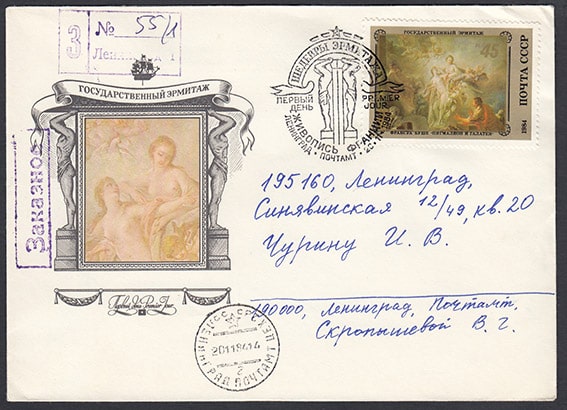 З
№ 55/1
Ленинград 1
ГОСУДАРСТВЕННЫЙ ЭРМИТАЖ
Заказное
Первый день Premier Jour
ШЕДЕВРЫ ЭРМИТАЖА
ПЕРВЫЙ ДЕНЬ
PREMIER JOUR
ЖИВОПИСЬ ФРАНЦИИ
ЛЕНИНГРАД • ПОЧТАМТ • 1984
ГОСУДАРСТВЕННЫЙ ЭРМИТАЖ
45
ПОЧТА СССР
1984
ФРАНСУА БУШЕ «ПИГМАЛИОН И ГАЛАТЕЯ»
195160, Ленинград,
Синявинская 12/49, кв. 20
Чурину И. В.
190000, Ленинград, Почтамт.
Скропышевой В. Г.
ЛЕНИНГРАД ПОЧТАМТ
20118414
2